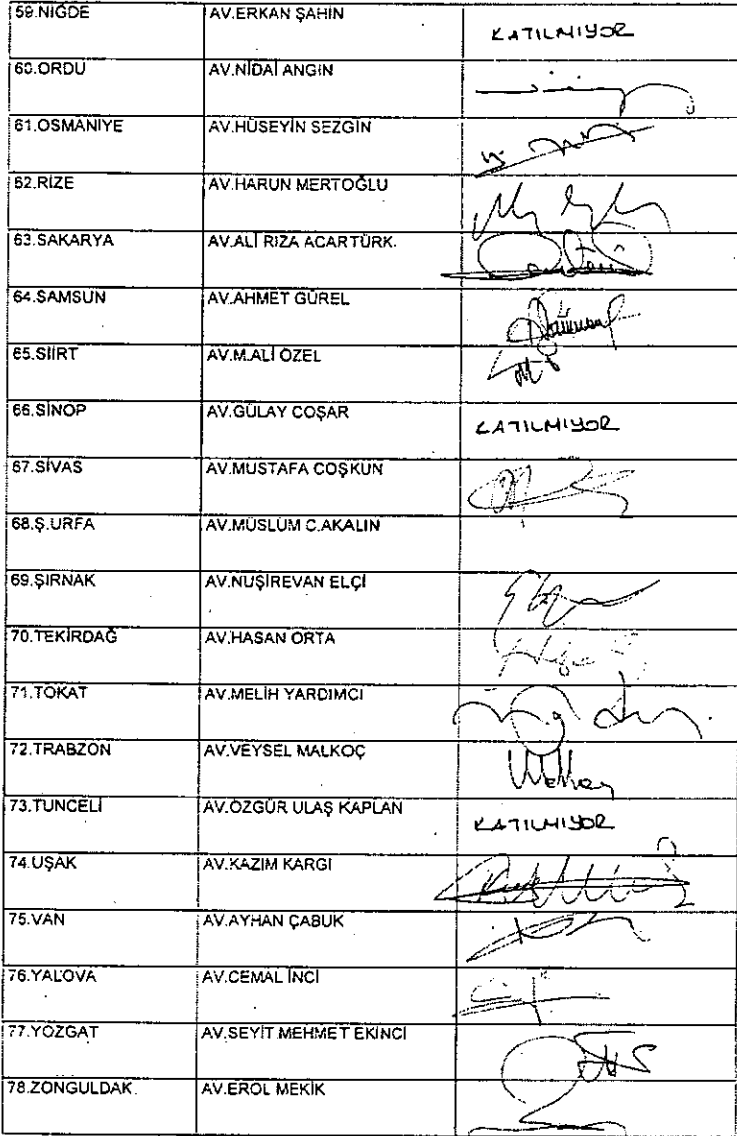 59.NİĞDE AV.ERKAN ŞAHİN KATILMIYOR
60.ORDU AV.NİDAİ ANGIN
61.OSMANİYE AV.HÜSEYİN SEZGİN
62.RİZE AV.HARUN MERTOĞLU
63.SAKARYA AV.ALİ RIZA ACARTÜRK.
64.SAMSUN AV.AHMET GÜREL
65.SİİRT AV.M.ALİ ÖZEL
66.SİNOP AV.GÜLAY COŞAR KATILMIYOR
67.SİVAS AV.MUSTAFA COŞKUN
68.Ş.URFA AV.MÜSLÜM C.AKALIN
69.ŞIRNAK AV.NUŞİREVAN ELÇİ
70.TEKİRDAĞ AV.HASAN ORTA
71.TOKAT AV.MELİH YARDIMCI
72.TRABZON AV.VEYSEL MALKOÇ
73.TUNCELİ AV.ÖZGÜR ULAŞ KAPLAN KATILMIYOR
74.UŞAK AV.KAZIM KARGI
75.VAN AV.AYHAN ÇABUK
76.YALOVA AV.CEMAL İNCİ
77.YOZGAT AV.SEYİT MEHMET EKİNCİ
78.ZONGULDAK. AV.EROL MEKİK